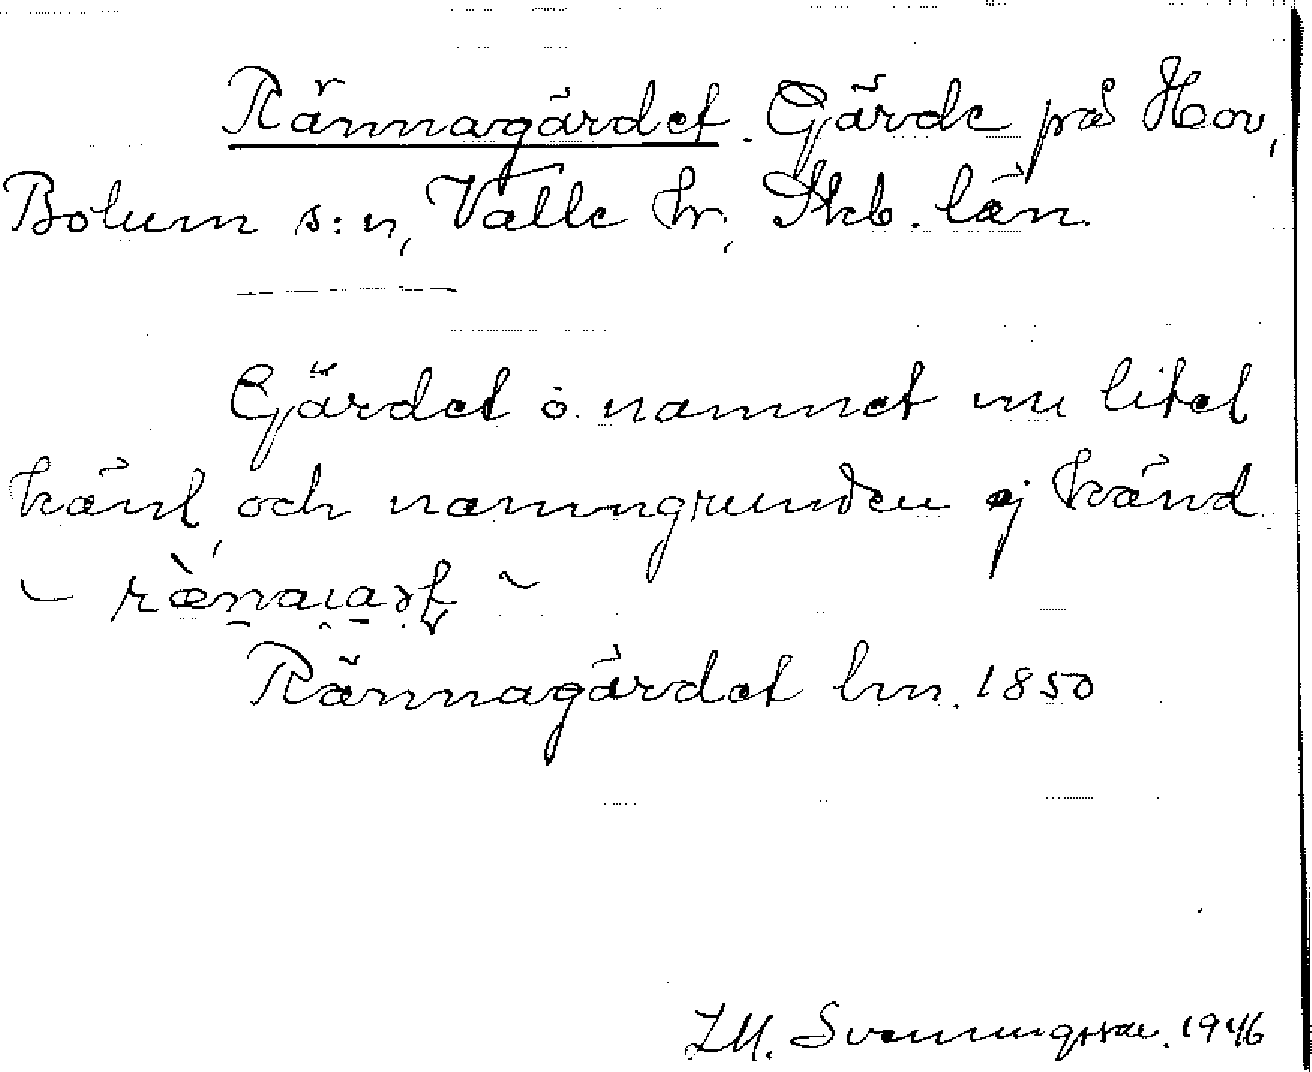 Rännagärdet. Gärde på Hov,
Bolum s:n, Valle hr, Skb. län.
Gärdet o. namnet nu litet
känt, och namngrunden ej känd.
Rännagärdet hm. 1850
Svenningsson. 1946